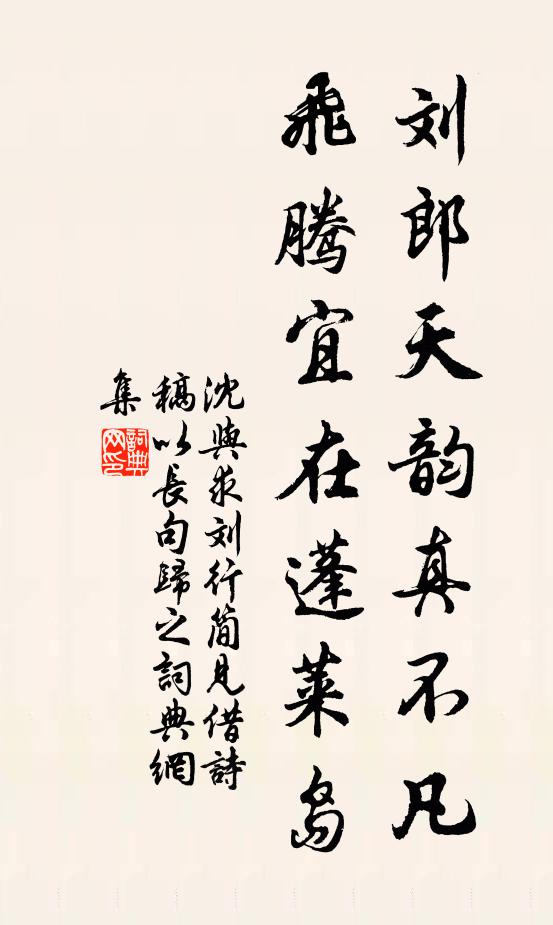 刘郎天韵真不凡
飛騰宜在蓬萊島
沈與求刘行簡見借詩
稿以長句歸之詞典網
集
詞典
网印